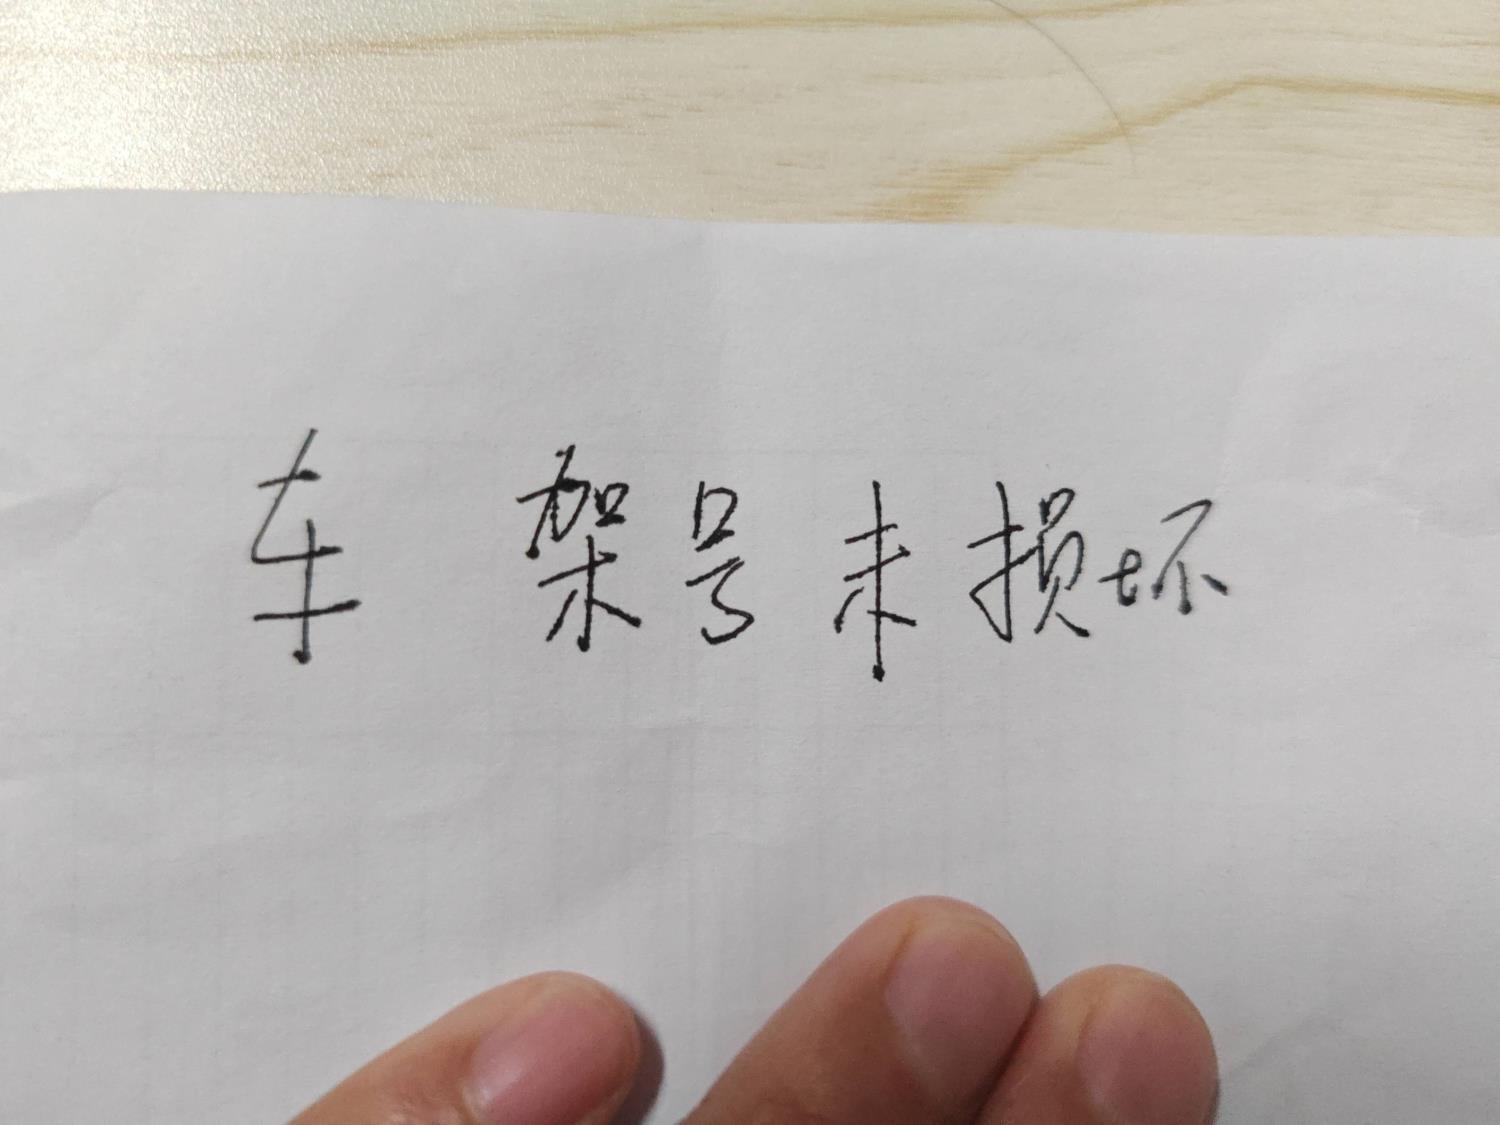 车架号未损坏